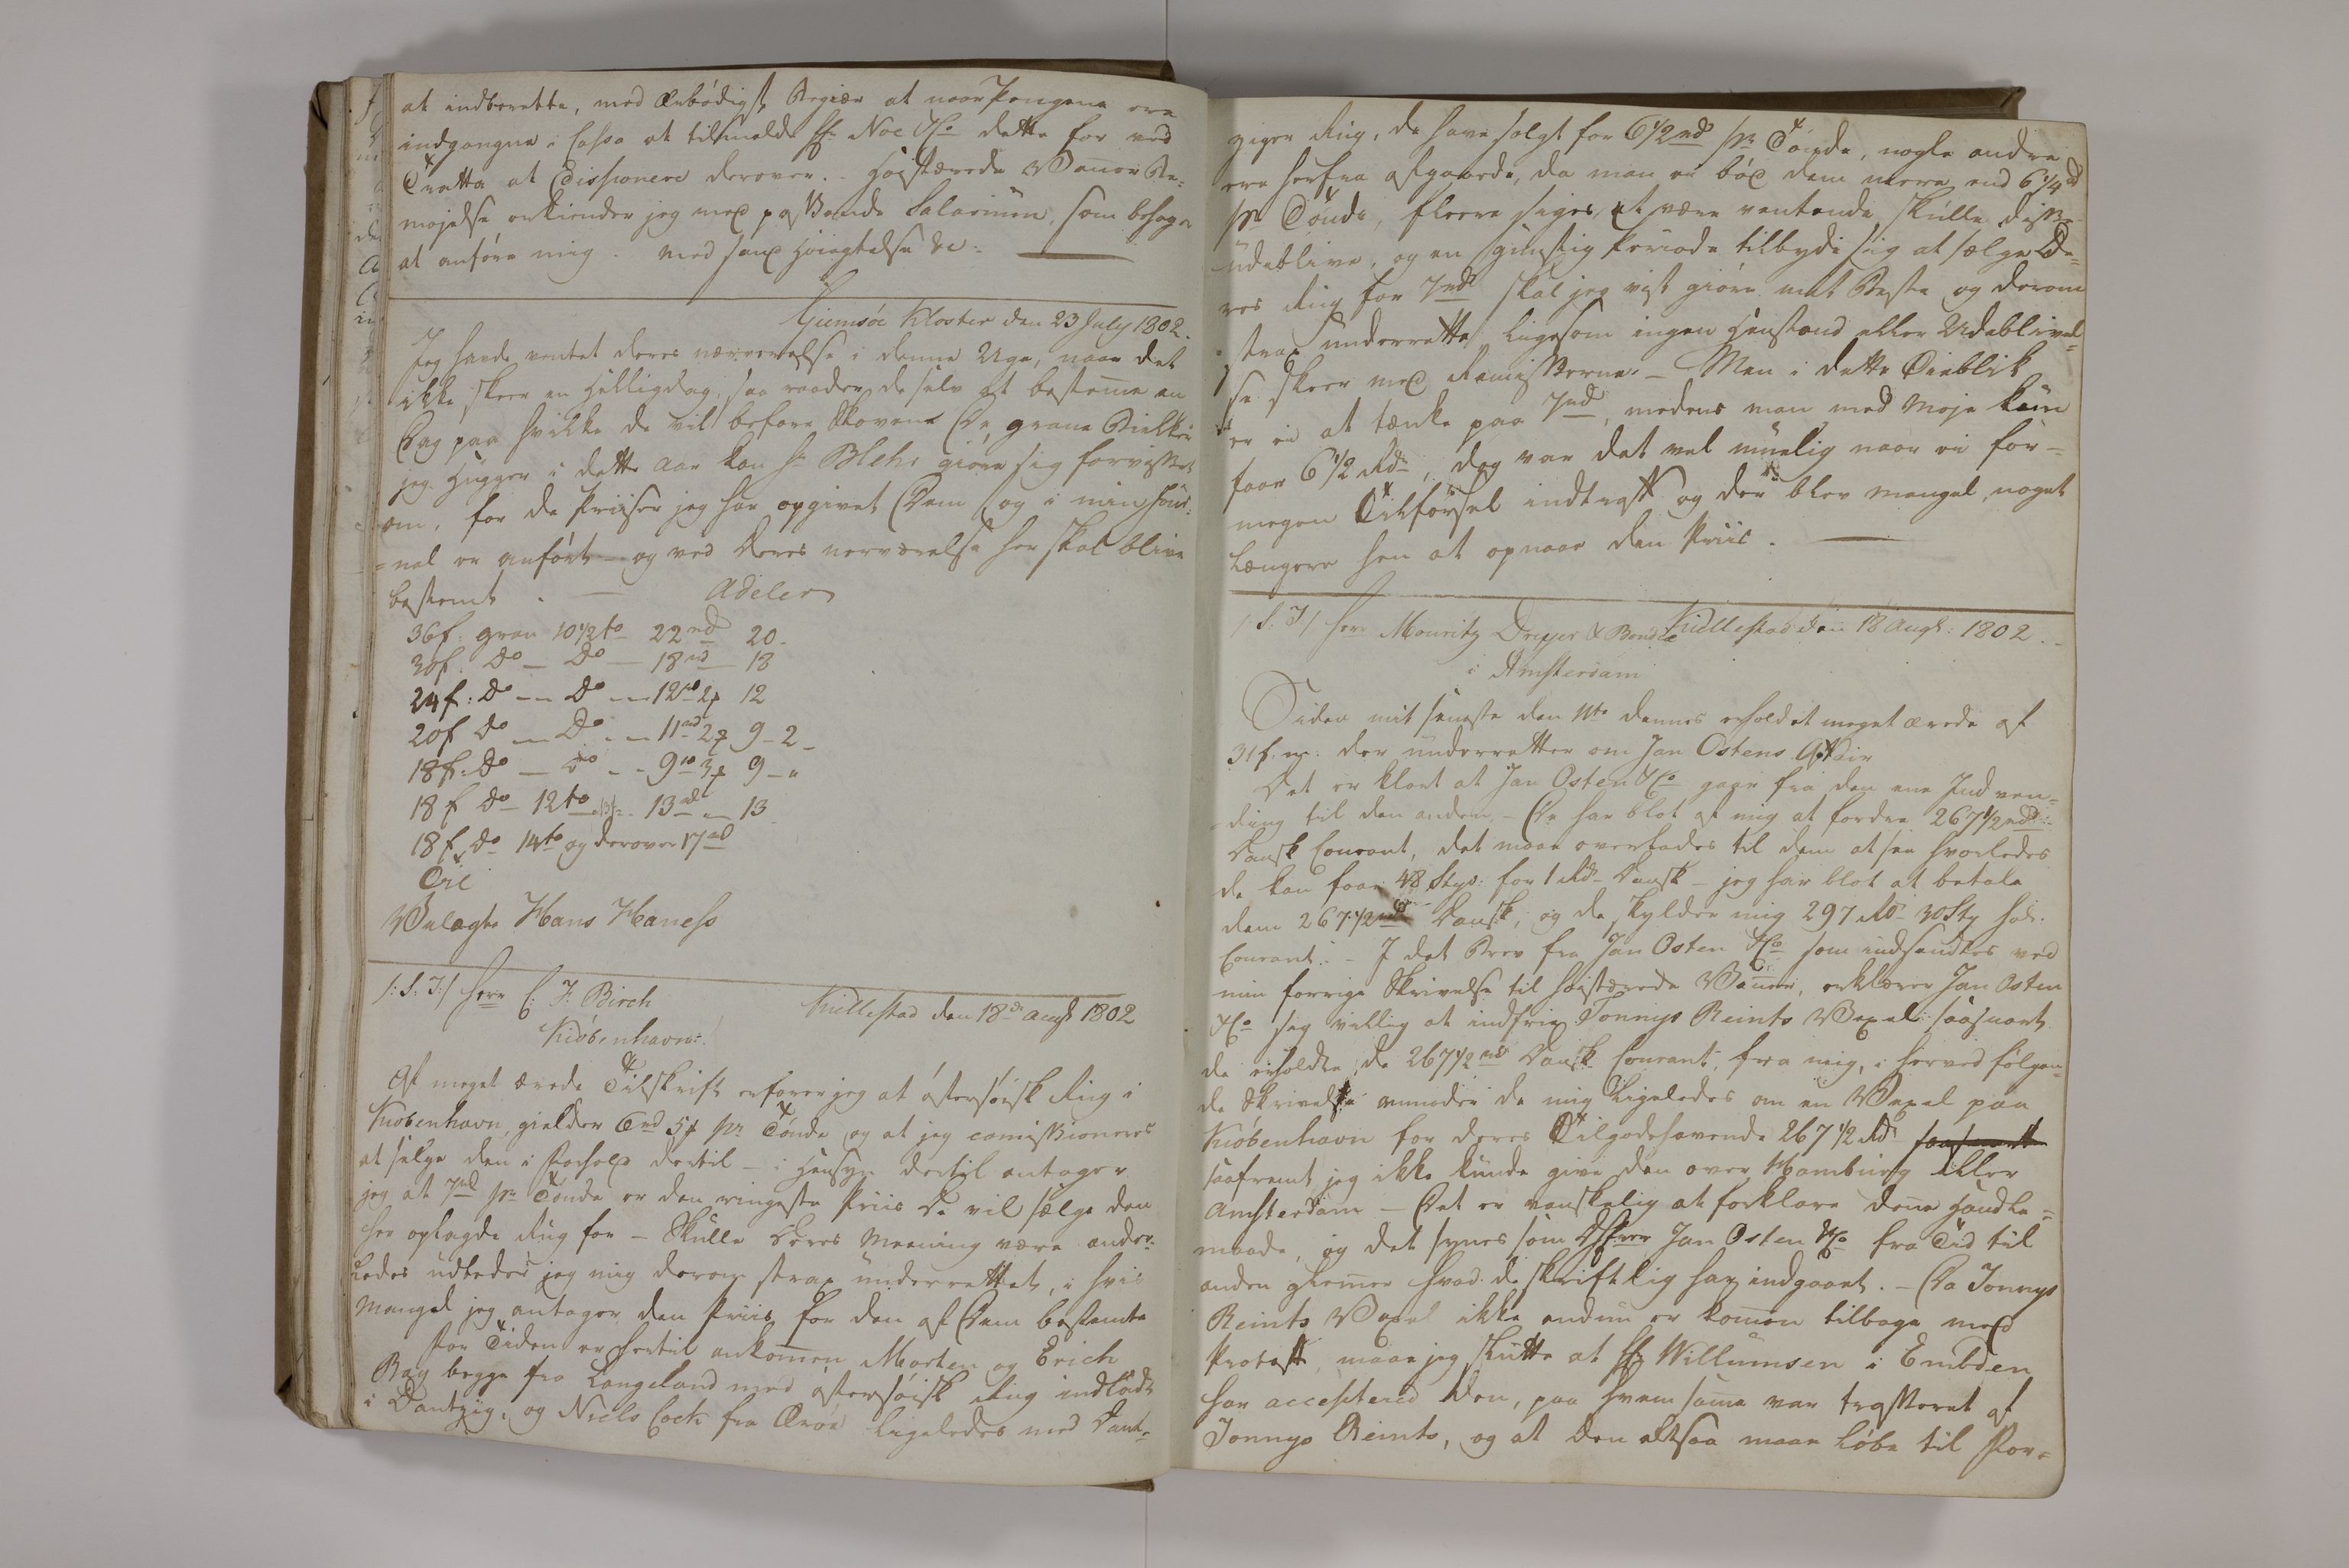 at indberette, med Ærbødigst Begiær at naar Pengene ere
indgangne i Cassa at tilmelde Hr. Noe & Co dette for ved
Tratta at disponere derover. - Høistærede Venners Be-
møjelse erkiender jeg med passende Salarium, som behager
at anføre mig. med sand Høiagtelse &c:
Giemsøe Kloster den 23 July 1802.
Jeg havde ventet deres nærværelse i denne Uge, naar det
ikke skeer en Helligdag, saa raader de selv at bestemme en
Dag paa hvilke de vil befare Skovene De grane Bielker
jeg hugger i dette Aar kan Hr Blehr giøre sig forvisset
om, for de Priiser jeg har opgivet Dem og i min Jour-
=nal er anført - og ved Deres nerværelse her skal blive
bestemt. - Adeler
36 f: gran 10 1/2 to 22 rd 20 -
30 f. do - do - 18 rd - 18
24 f: do - do - 12 rd 2 12
20 f do - do - 11 rd 2 9 - 2 -
18 f: do - do - 9 rd 3 9 - "
18 f do - 12 to 13 rd - 13
18 f do 14 to og derover 17 rd
Til
Velagte Hans Haness
/: S: T:/ Herr C: F: Birch Kiillestad den 18de Augt 1802
Kiøbenhavn:
Af meget ærede Tilskrift erfarer jeg at østersøisk Rug i
Kiøbenhavn, gielder 6 rd 5 pr Tønde og at jeg comissioneres
at selge den i Forhold dertil - i Hensyn dertil antager
jeg at 7 rd pr Tønde er den ringeste Priis De vil sælge den
her oplagde Rug for - Skulle Deres Meening være ander-
ledes udbeder jeg mig derom strax underrettet, i hvis
Mangel jeg antager den Priis for den af Dem bestemte
For Tiden er hertil ankommen Morten og Erich
Bay begge fra Langeland med østersøisk Rug indladt
i Dantzig, og Niels Cock fra Ærøe ligeledes med Dant-
ziger Rug, de have solgt for 6 1/2 rd pr Tønde, nogle andre
ere herfra afgaaede, da man ei bød dem mere end 6 1/4 rd
pr Tønde, fleere siges at være ventende skulle disse
udeblive, og en gunstig Periode tilbyde sig at sælge De-
res Rug for 7 rd skal jeg vist giøre mit Beste og derom
strax underrette ligesom ingen Henstand eller Udeblivel-
se skeer med Remisserne. - Men i dette Øieblik
er ei at tænke paa 7 rd, medens man med Møje kun
faar 6 1/2 Rdr, dog var det vel muelig naar ei for-
megen Tilførsel indtraff og der blev mangel, noget
længere hen at opnaae den Priis.
/ S: T / Herr Mouritz Dreyer & Kiillestad den 18 Augt: 1802.
i Amsterdam
Siden mit seneste den 11te dennes erholdet meget ærede af
31 f. m. der underretter om Jan Ostens Affair
Det er klart at Jan Osten & Co gaar fra den ene Indven-
ding til den anden. - De har blot af mig at fordre 267 1/2 rd
Dansk Courant, det maae overlades til dem at see hvorledes
de kan faae 48 Styv: for 1 Rdr Dansk - jeg har blot at betale
dem 267 1/2 rd Dansk, og de skylder mig 297 Rdr 30 Sty hol:
Courant: - I det Brev fra Jan Osten & Co som indsendtes ved
min forrige Skrivelse til Høistærede Venner, erklærer Jan Osten
& Co sig villig at indfrie Tonnys Reints Vexel saasnart
de erholdte de 267 1/2 rd Dansk Courant fra mig, i herved følgen-
de Skrivelse anmoder de mig ligeledes om en Vexel paa
Kiøbenhavn for deres Tilgodehavende 267 1/2 Rdr saafremt
saafremt jeg ikke kunde give den over Hamburg eller
Amsterdam - Det er vanskelig at forklare denne Handle-
maade, og det synes som Herrer Jan Osten & Co fra Tid til
anden glemmer hvad de skriftlig har indgaaet. - Da Tonnys
Reints Vexel ikke endnu er kommen tilbage med
Protest, maae jeg slutte at Hr Willumsen i Embden
har accepteret den, paa hvem samme var trasseret af
Tonnys Reints, og at den altsaa maae løbe til For-